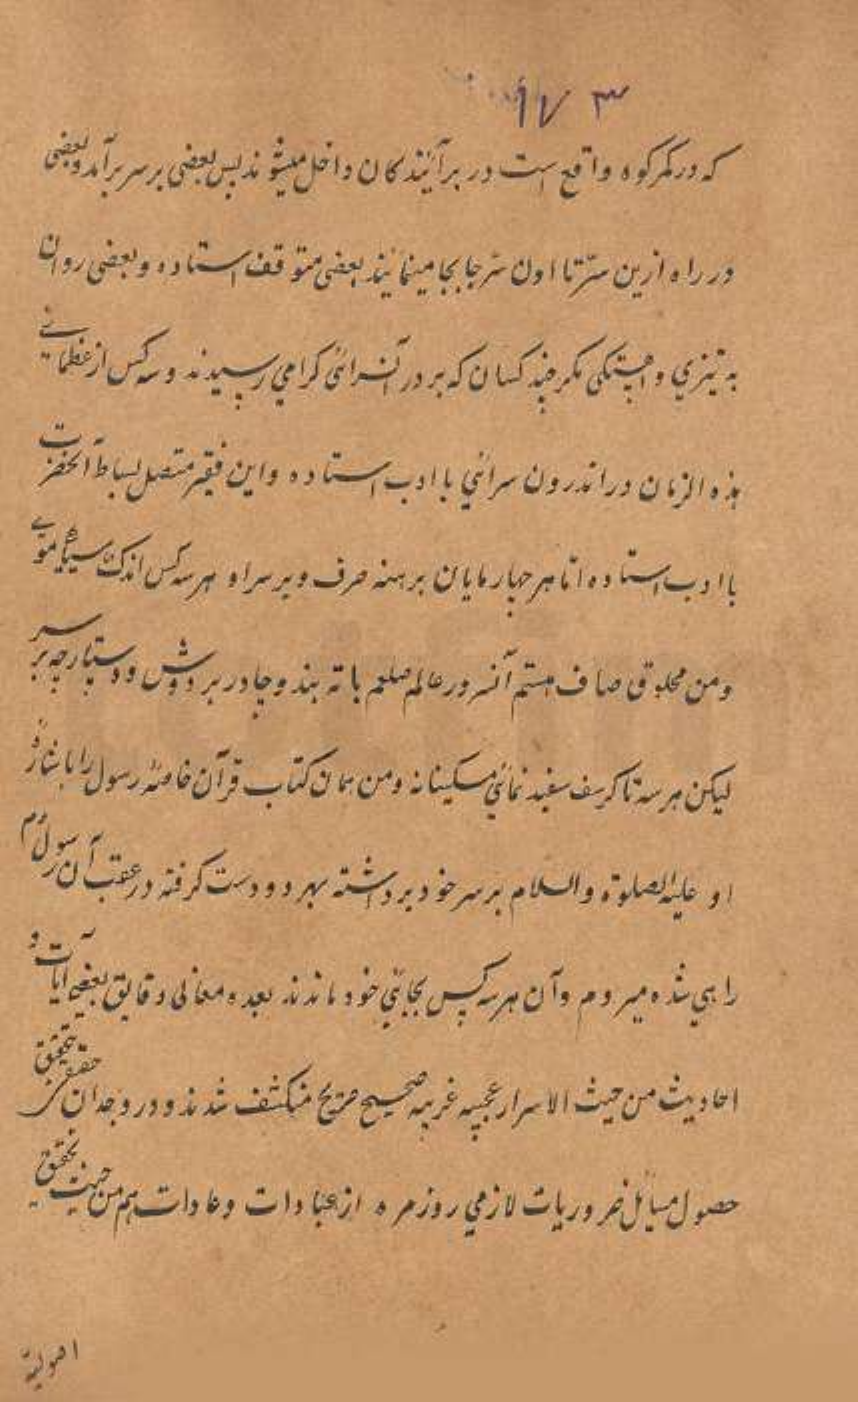 ۱۷۳
که در کمر کوه واقع است در برآئیندکان داخل میشوند پس بعضی بر سر برآمد و بعضی
در راه ازین سرّ تا اون سر جابجا مینمایند بعضی متوقف استاده و بعضی روان
به تیزی و اهستکی مکر چند کسان که بر در آنسرائی کرامی رسیدند و سه کس از عظمائے
هذه الزمان در اندرون سرائی با ادب استاده و این فقیر متصل بساط آنحضرت
با ادب استاده اما هر چهار مایان برهنه صرف و بر سر او هر سه کس اندک سیاهی موے
و من محلوق صاف هستم آنسرور عالم صلعم با ته بند و چادر بر دوش و دستارچه بر سر
لیکن هر سه تا کرسف سفید نمائی مسکینانه و من همان کتاب قرآن خاصهٔ رسول را
او علیه الصلوة والسلام بر سر خود برداشته بهر دو دست کرفته در عقب آن رسول
راهی شده میروم و آن هر سه کس بجائی خود ماندند بعده معانی دقایق بعضی آیات و
احادیث من حیث الاسرار عجیبه غریبه صحیح صریح منکشف شدند و در وجدان
حصول مسائل ضروریات لازمی روزمره از عبادات و عادات هم من حیث تحقیق